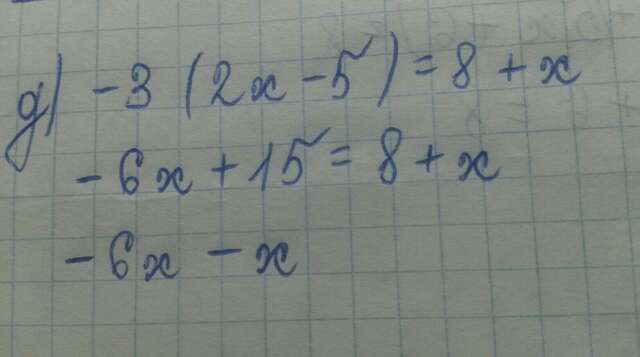 д) -3 (2x - 5) = 8 + x
-6x + 15 = 8 + x
-6x - x